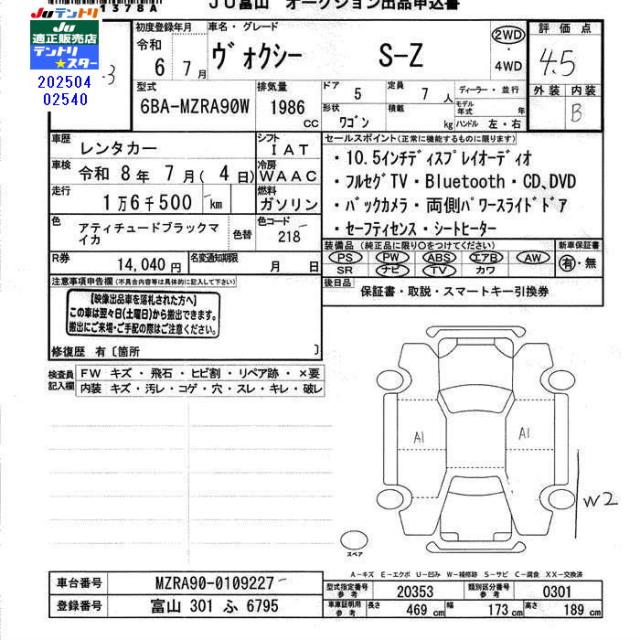 1378A
JU富山 オークション出品申込書
Juテントリ
Ju
適正販売店
テントリ
★スター
202504
02540
3
初度登録年月
令和
6 7月
車名・グレード
ヴォクシー S-Z
2WD
・
4WD
評価点
4.5
外装 内装
B
型式
6BA-MZRA90W
排気量
1986 CC
ドア
5
定員
7 人
ディーラー・並行
形状
ワゴン
積載
kg
モデル年式 年
ハンドル 左・右
車歴
レンタカー
シフト
IAT
車検
令和 8年 7月( 4日)
冷房
WAAC
走行
1万6千500 km
燃料
ガソリン
色
アティチュードブラックマイカ
色替
色コード
218
R券
14,040円
名変通知期限
月 日
セールスポイント(正常に機能するものに限ります)
・10.5インチディスプレイオーディオ
・フルセグTV・Bluetooth・CD、DVD
・バックカメラ・両側パワースライドドア
・セーフティセンス・シートヒーター
装備品(純正品に限り○をつけてください)
PS PW ABS エアB AW
SR ナビ TV カワ
新車保証書
有・無
後日品
保証書・取説・スマートキー引換券
注意事項申告欄(不具合内容等は具体的に記入して下さい)
【映像出品車を落札された方へ】
この車は翌々日(土曜日)から搬出できます。
搬出にご来場・ご手配の際はご注意ください。
修復歴 有〔箇所 〕
検査員記入欄
FW キズ・飛石・ヒビ割・リペア跡・×要
内装 キズ・汚レ・コゲ・穴・スレ・キレ・破レ
A1
A1
W2
スペア
A-キズ E-エクボ U-凹み W-補修跡 S-サビ C-腐食 XX-交換済
車台番号
MZRA90-0109227
登録番号
富山 301 ふ 6795
型式指定番号 参考
20353
類別区分番号 参考
0301
車車証明用 参考
長さ 469 cm
幅 173 cm
高さ 189 cm